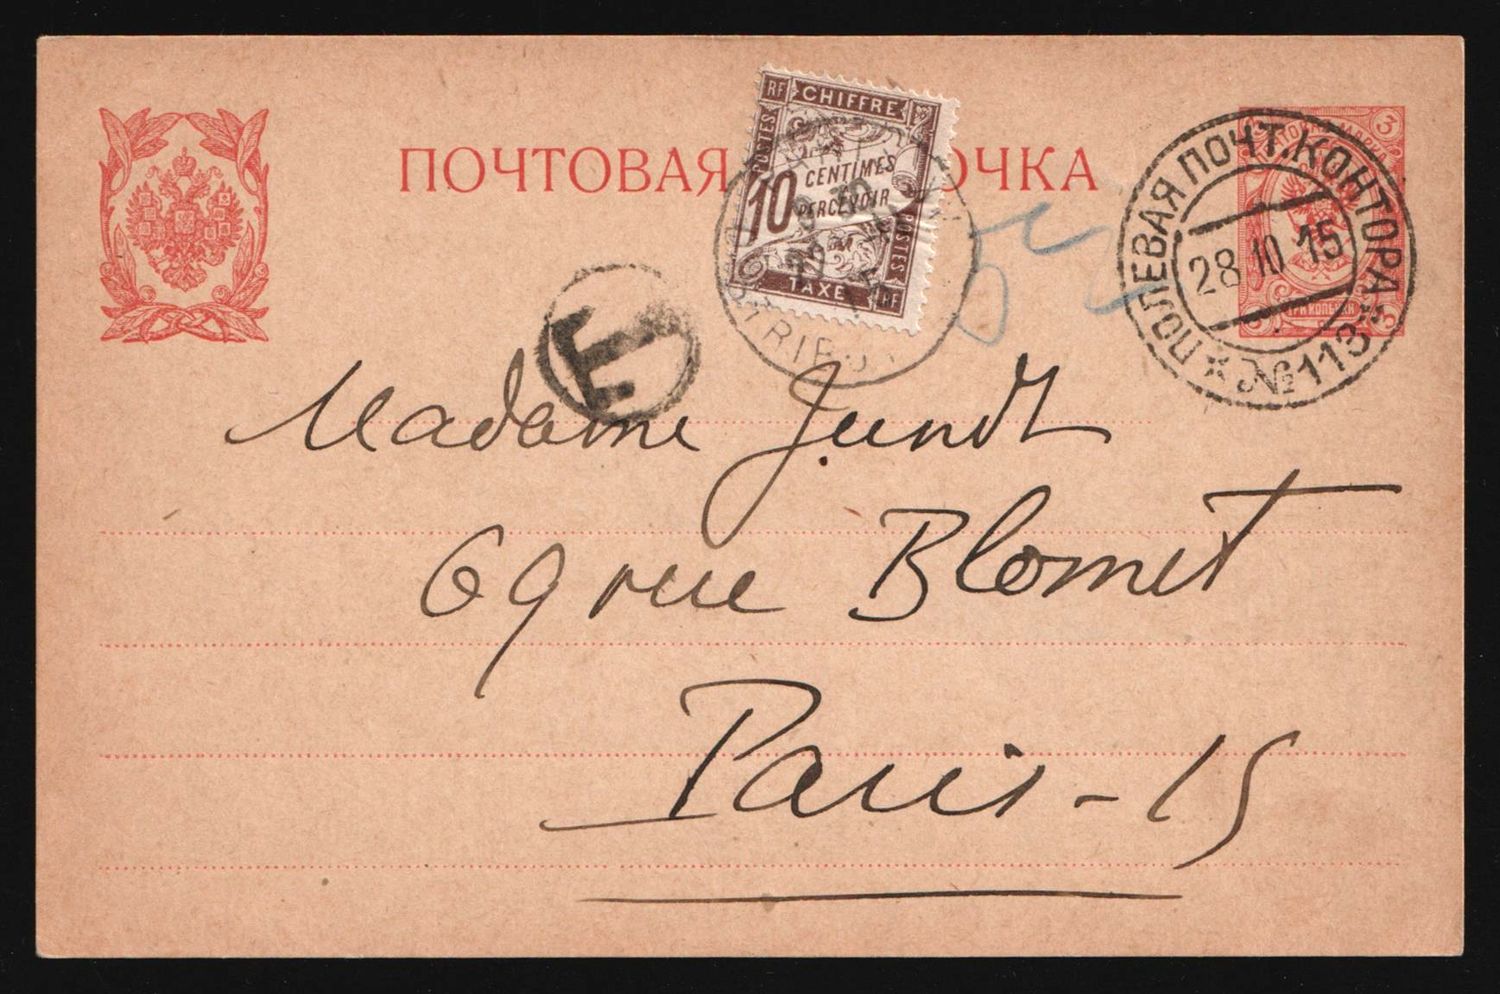 ПОЧТОВАЯ ОЧКА
RF CHIFFRE
POSTES
10 CENTIMES
PERCEVOIR
POSTES
TAXE RF
ПОЛЕВАЯ ПОЧТ. КОНТОРА
28 10 15
№ 113
3
3
T
Madame Jundt
69 rue Blomet
Paris - 15